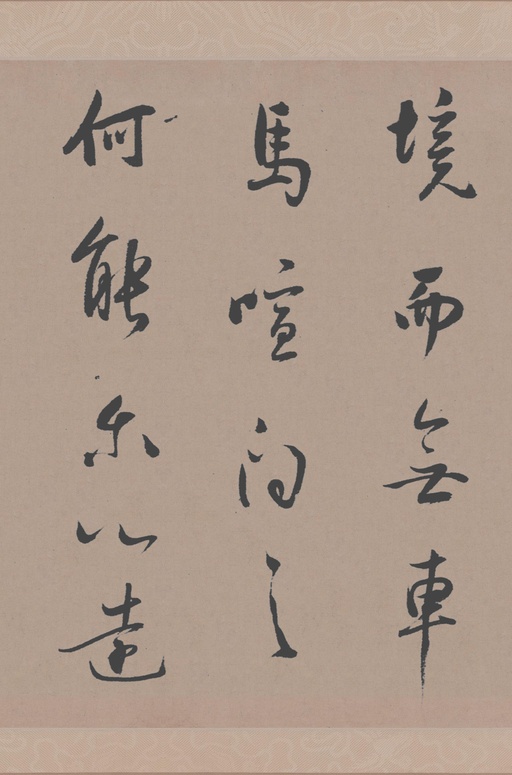 境而無車
馬喧問君
何能尔心遠